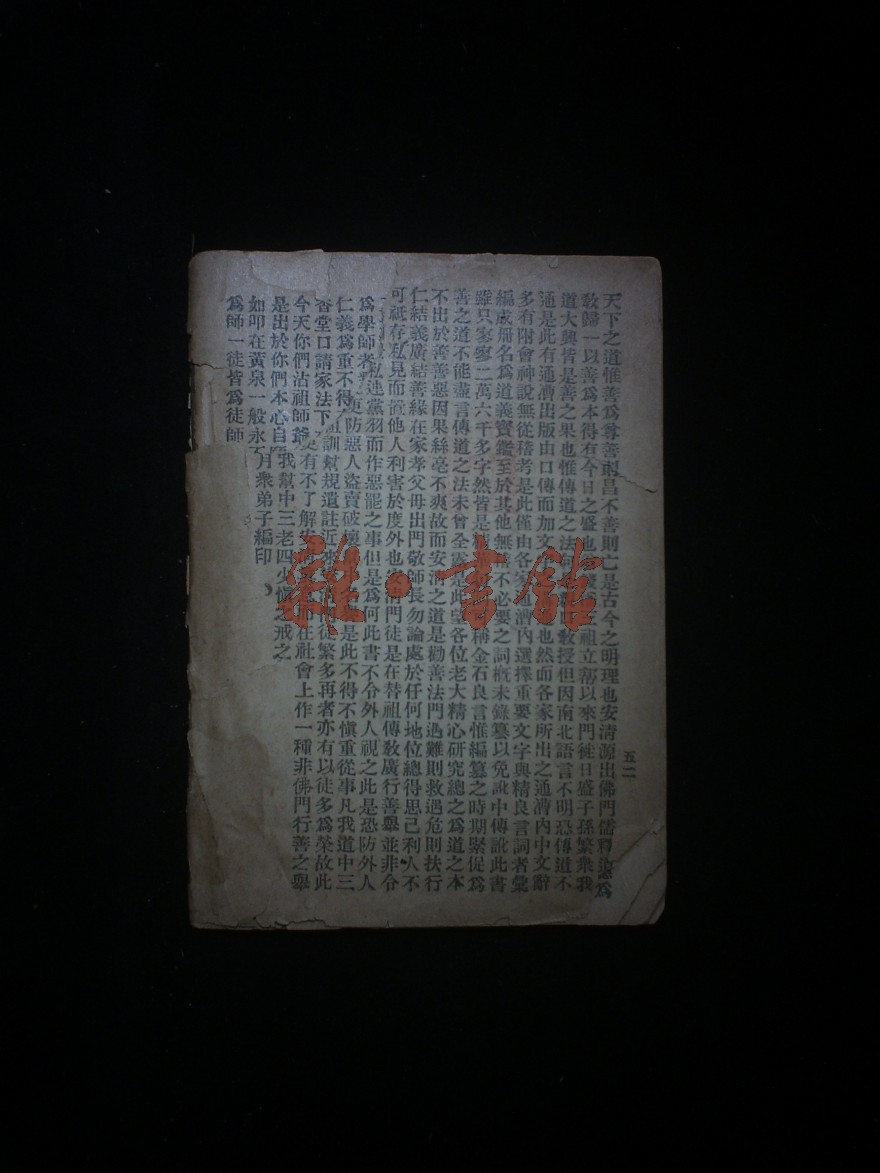 五二
天下之道惟善爲尊善則昌不善則亡是古今之明理也安淸源出佛門儒釋道爲
敎歸一以善爲本得有今日之盛也祖立幫以來門徒日盛子孫繁衆我
道大興皆是善之果也惟傳道之法敎授但因南北語言不明恐傳道不
通是此有通漕出版由口傳而加文也然而各家所出之通漕內中文辭
多有附會神說無從稽考是此僅由各家通漕內選擇重要文字與精良言詞者彙
編成册名爲道義寶鑑至於其他無不必要之詞槪未錄纂以免訛中傳訛此書
雖只寥寥二萬六千多字然皆是稱金石良言惟編纂之時期緊促爲
善之道不能盡言傳道之法未曾全露是此望各位老大精心硏究總之爲道之本
不出於善善惡因果絲毫不爽故而安淸之道是勸善法門遇難則救遇危則扶行
仁結義廣結善緣在家孝父母出門敬師長勿論處於任何地位總得思己利人不
可祗存私見而置他人利害於度外也安淸門徒是在替祖傳敎廣行善舉並非令
私連黨羽而作惡罷之事但是爲何此書不令外人視之此是恐防外人
爲學師者更防惡人盜賣破壞是此不得不愼重從事凡我道中三
仁義爲重不得訓幫規遺註近來徒繁多再者亦有以徒多爲榮故此
香堂口請家法下有不了解安在社會上作一種非佛門行善之舉
今天你們沾祖師爺我幫中三老四少愼之戒之
是出於你們本心自月衆弟子編印
如叩在黃泉一般永
爲師一徒皆爲徒師
雜·書館